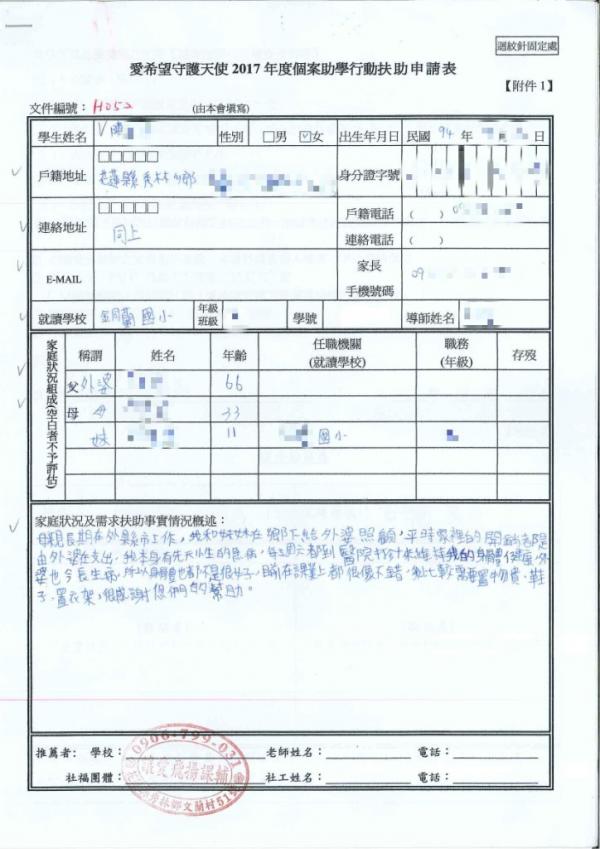 迴紋針固定處
愛希望守護天使 2017 年度個案助學行動扶助申請表
【附件 1】
文件編號：H052 (由本會填寫)
學生姓名 陳 性別 □男 ☑女 出生年月日 民國 94 年 日
戶籍地址 □□□□□ 花蓮縣秀林鄉 身分證字號
戶籍電話 ( ) 0
連絡地址 □□□□□ 同上
連絡電話 ( )
E-MAIL 家長手機號碼 09
就讀學校 銅蘭國小 年級班級 學號 導師姓名
家庭狀況組成(空白者不予評估)
稱謂 姓名 年齡 任職機關(就讀學校) 職務(年級) 存歿
父 外婆 66
母 母 33
妹 11 國小
家庭狀況及需求扶助事實情況概述：
母親長期在外縣市工作，我和妹妹在鄉下給外婆照顧，平時家裡的開銷都是
由外婆在支出，我本身有先天性的疾病，每週都到醫院打針來維持我的身體，外
婆也今長生病，所以身體也都不是很好，目前在課業上都很不錯，需要置物櫃、鞋
子、置衣架，很感謝您們的幫助。
推薦者： 學校： 老師姓名： 電話：
社福團體： 社工姓名： 電話：
0906-799-031
飛揚課輔
秀林鄉文蘭村51